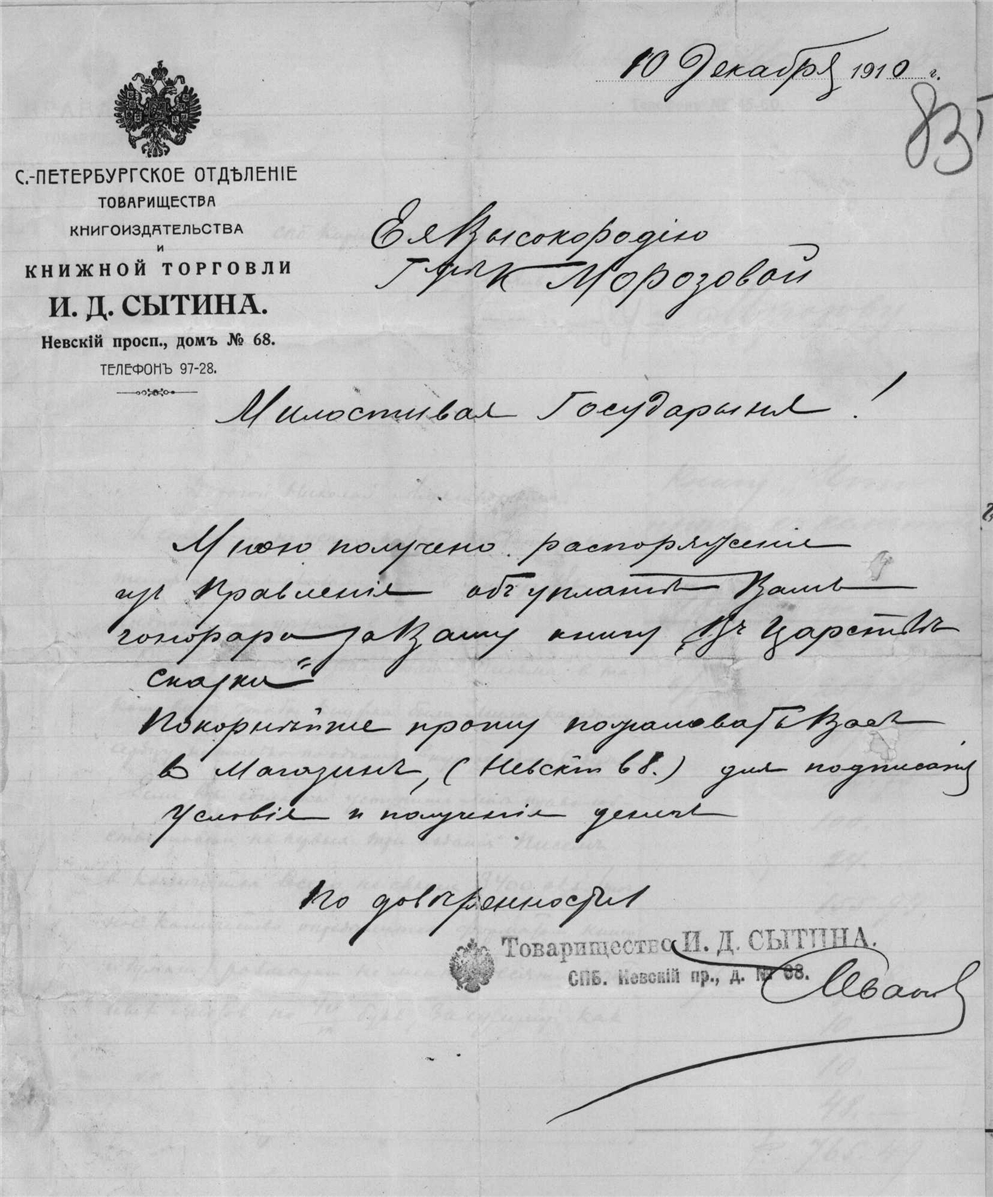 10 Декабря 1910 г.
835
С.-ПЕТЕРБУРГСКОЕ ОТДѢЛЕНІЕ
ТОВАРИЩЕСТВА
КНИГОИЗДАТЕЛЬСТВА
И
КНИЖНОЙ ТОРГОВЛИ
И. Д. СЫТИНА.
Невскій просп., домъ № 68.
ТЕЛЕФОНЪ 97-28.
Ея Высокородію
Г-жѣ Морозовой
Милостивая Государыня!
Мною получено распоряженіе
изъ Правленія объ уплатѣ Вамъ
гонорара за Вашу книгу „Въ Царствѣ
сказки"
Покорнѣйше прошу пожаловать Васъ
въ Магазинъ, (Невскій 68.) для подписанія
условія и полученія денегъ
По довѣренности
Товарищество И. Д. СЫТИНА.
СПБ. Невскій пр., д. № 68.